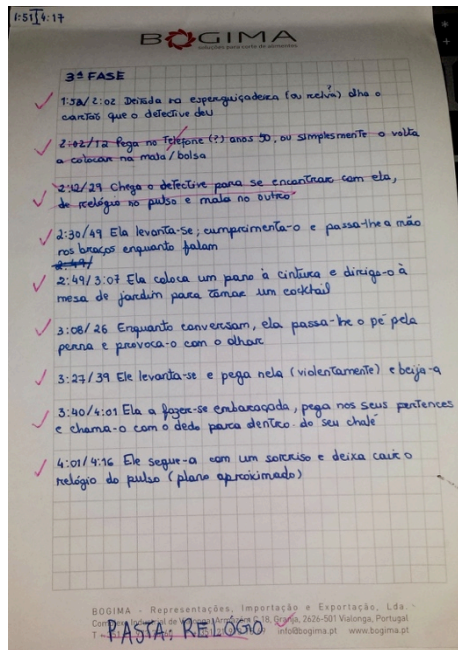 1:51 4:17
BOGIMA
soluções para corte de alimentos
3ª FASE
1:52/2:02 Deitada na espreguiçadeira (ou relva) olha o
cartão que o detective deu
2:02/12 Pega no Telefone (?) anos 50, ou simplesmente o volta
a colocar na mala/bolsa
2:12/29 Chega o detective para se encontrar com ela,
de relógio no pulso e mala no outro
2:30/49 Ela levanta-se, cumprimenta-o e passa-lhe a mão
nos braços enquanto falam
2:49/
2:49/3:07 Ela coloca um pano à cintura e dirige-o à
mesa de jardim para tomar um cocktail
3:08/26 Enquanto conversam, ela passa-lhe o pé pela
perna e provoca-o com o olhar
3:27/39 Ele levanta-se e pega nela (violentamente) e beija-a
3:40/4:01 Ela a fazer-se embaraçada, pega nos seus pertences
e chama-o com o dedo para dentro do seu chalé
4:01/4:16 Ele segue-a com um sorriso e deixa cair o
relógio do pulso (plano aproximado)
BOGIMA - Representações, Importação e Exportação, Lda.
Industrial de 18, Granja, 2626-501 Vialonga, Portugal
info@bogima.pt www.bogima.pt
PASTA: RELÓGIO